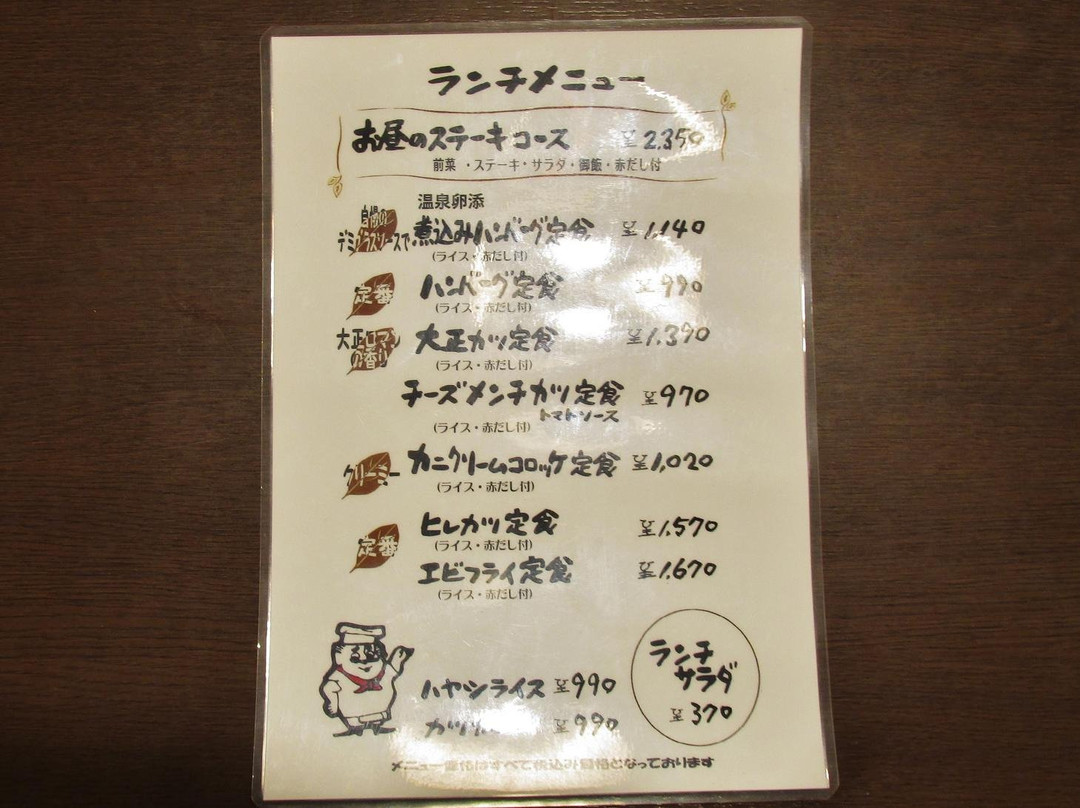 ランチメニュー
お昼のステーキコース ¥2,350
前菜・ステーキ・サラダ・御飯・赤だし付
温泉卵添
自慢の
デミグラスソースで 煮込みハンバーグ定食 ¥1,140
(ライス・赤だし付)
定番 ハンバーグ定食 ¥990
(ライス・赤だし付)
大正ロマン
の香り 大正カツ定食 ¥1,390
(ライス・赤だし付)
チーズメンチカツ定食 ¥970
トマトソース
(ライス・赤だし付)
クリーミー カニクリームコロッケ定食 ¥1,020
(ライス・赤だし付)
定番 ヒレカツ定食 ¥1,570
(ライス・赤だし付)
エビフライ定食 ¥1,670
(ライス・赤だし付)
ハヤシライス ¥990
カツ ¥990
ランチ
サラダ
¥370
メニュー価格はすべて税込み価格となっております